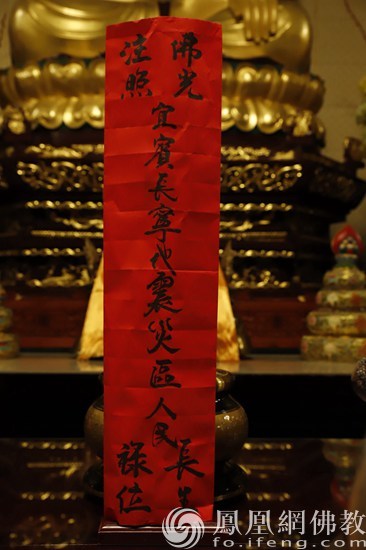 佛光
注照
宜賓長寧地震災區人民
長生
祿位
鳳凰網佛教
fo.ifeng.com